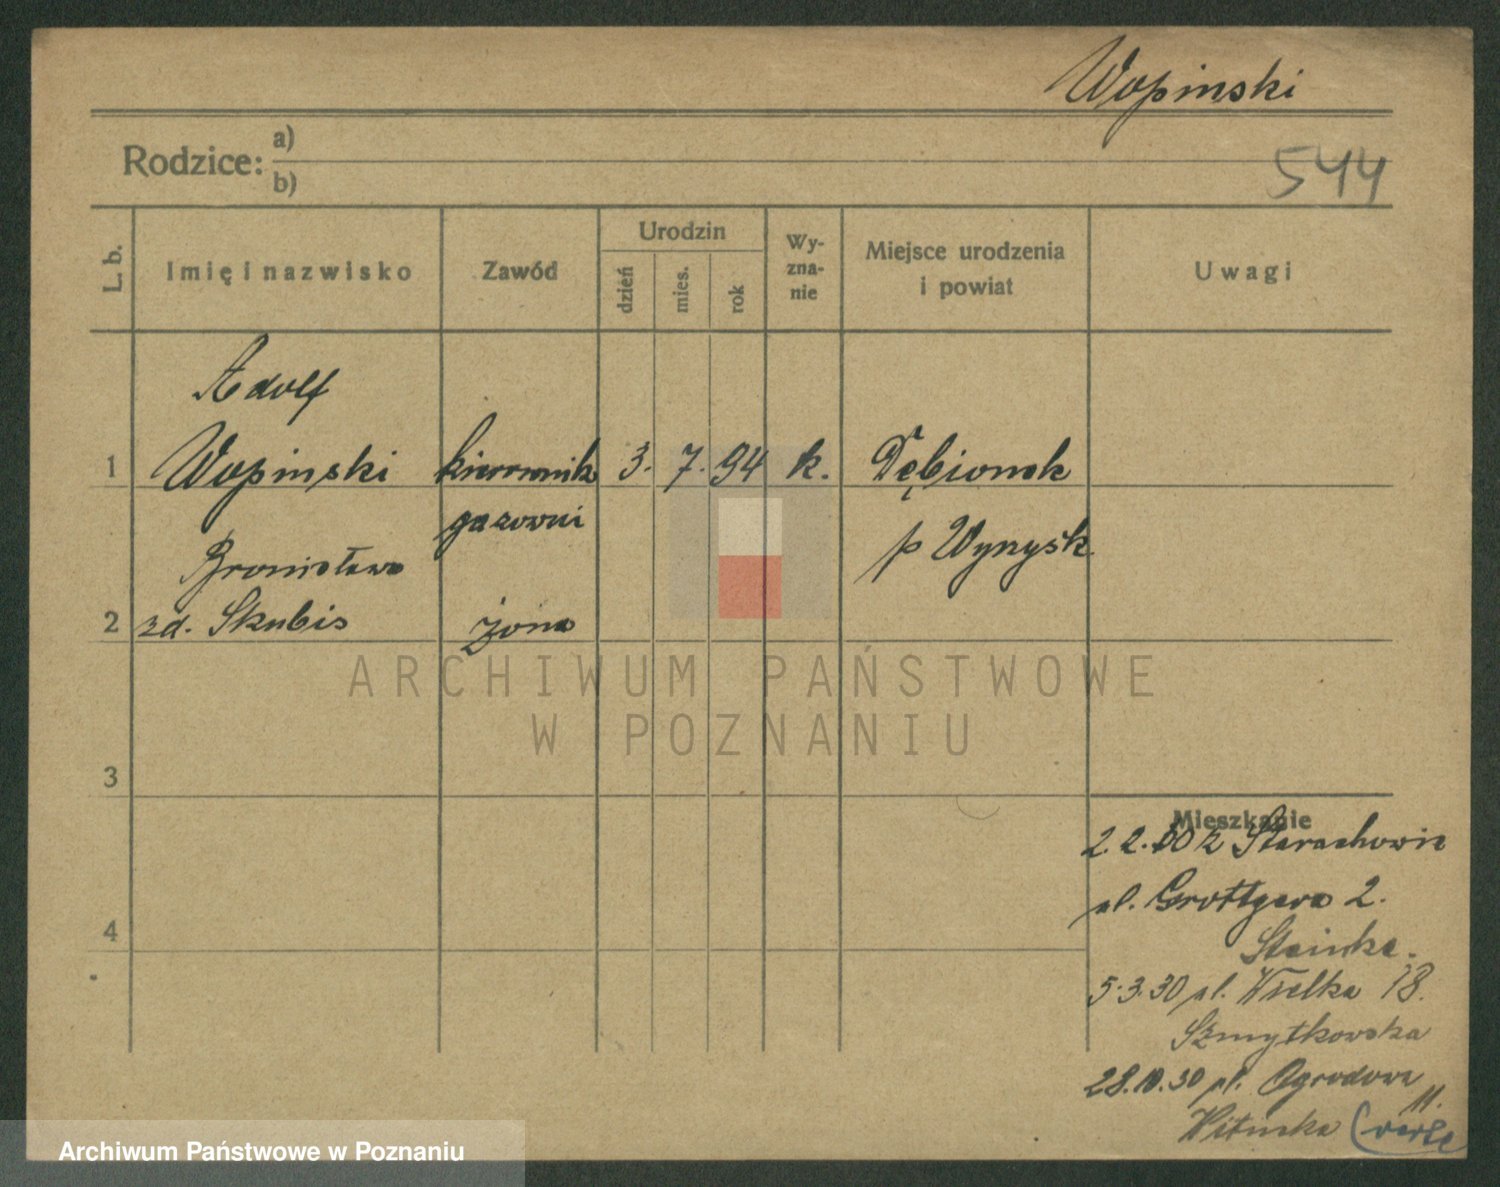 Wopinski
Rodzice: a)
b)
544
L. b.
Imię i nazwisko
Zawód
Urodzin
dzień
mies.
rok
Wy-
zna-
nie
Miejsce urodzenia
i powiat
Uwagi
Adolf
1 Wopinski kierownik 3. 7. 94 k. Dębionek
gazowni
p Wyrzysk
Bronisława
2 zd. Skubis żona
ARCHIWUM PAŃSTWOWE
W POZNANIU
3
Mieszkanie
2.2.30 z Starachowic
ul. Grottgera 2.
Steinke.
4
5.3.30 ul. Wielka 18.
Szmytkowska
28.10.30 ul. Ogrodowa
11.
(verte
Archiwum Państwowe w Poznaniu